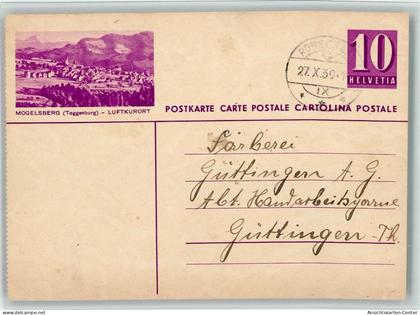 10
HELVETIA
27. X. 39
IX
MOGELSBERG (Toggenburg) – LUFTKURORT
POSTKARTE CARTE POSTALE CARTOLINA POSTALE
Färberei
Güttingen A. G.
Abt. Handarbeitsgarne
Güttingen-Th.
Ansichtskarten-Center